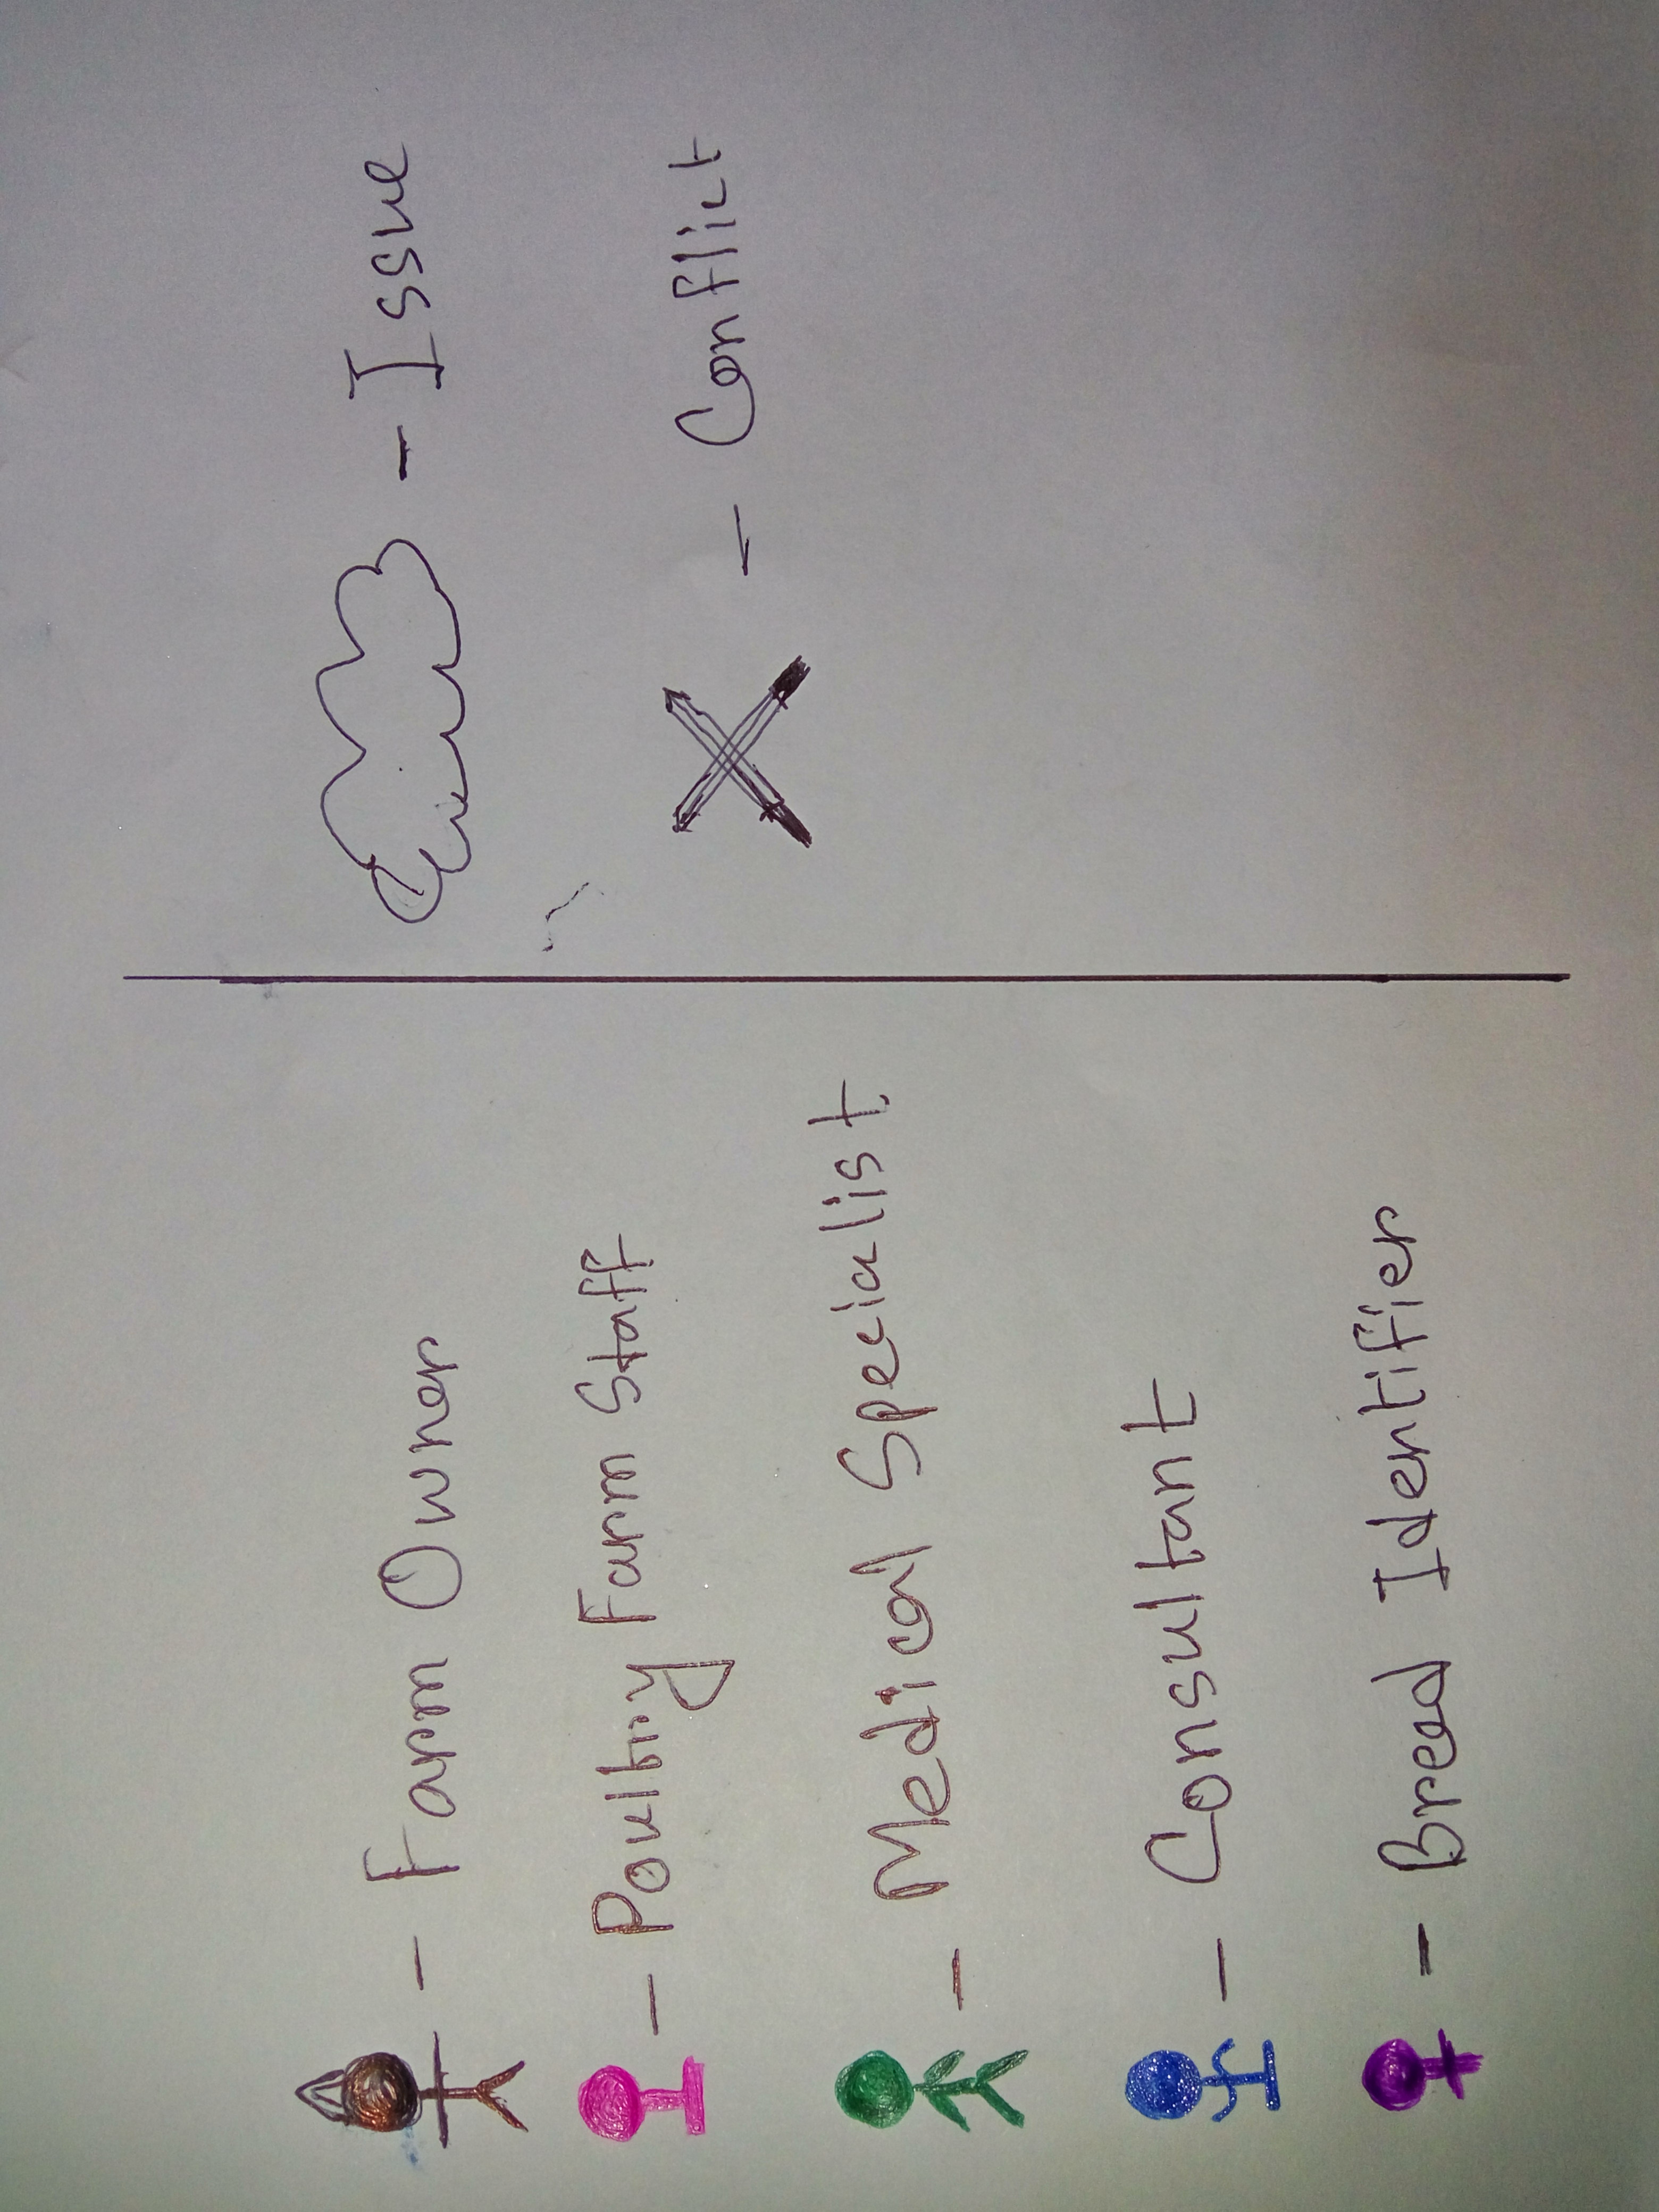 - Farm Owner
- Poultry Farm Staff
- Medical Specialist
- Consultant
- Breed Identifier
- Issue
- Conflict